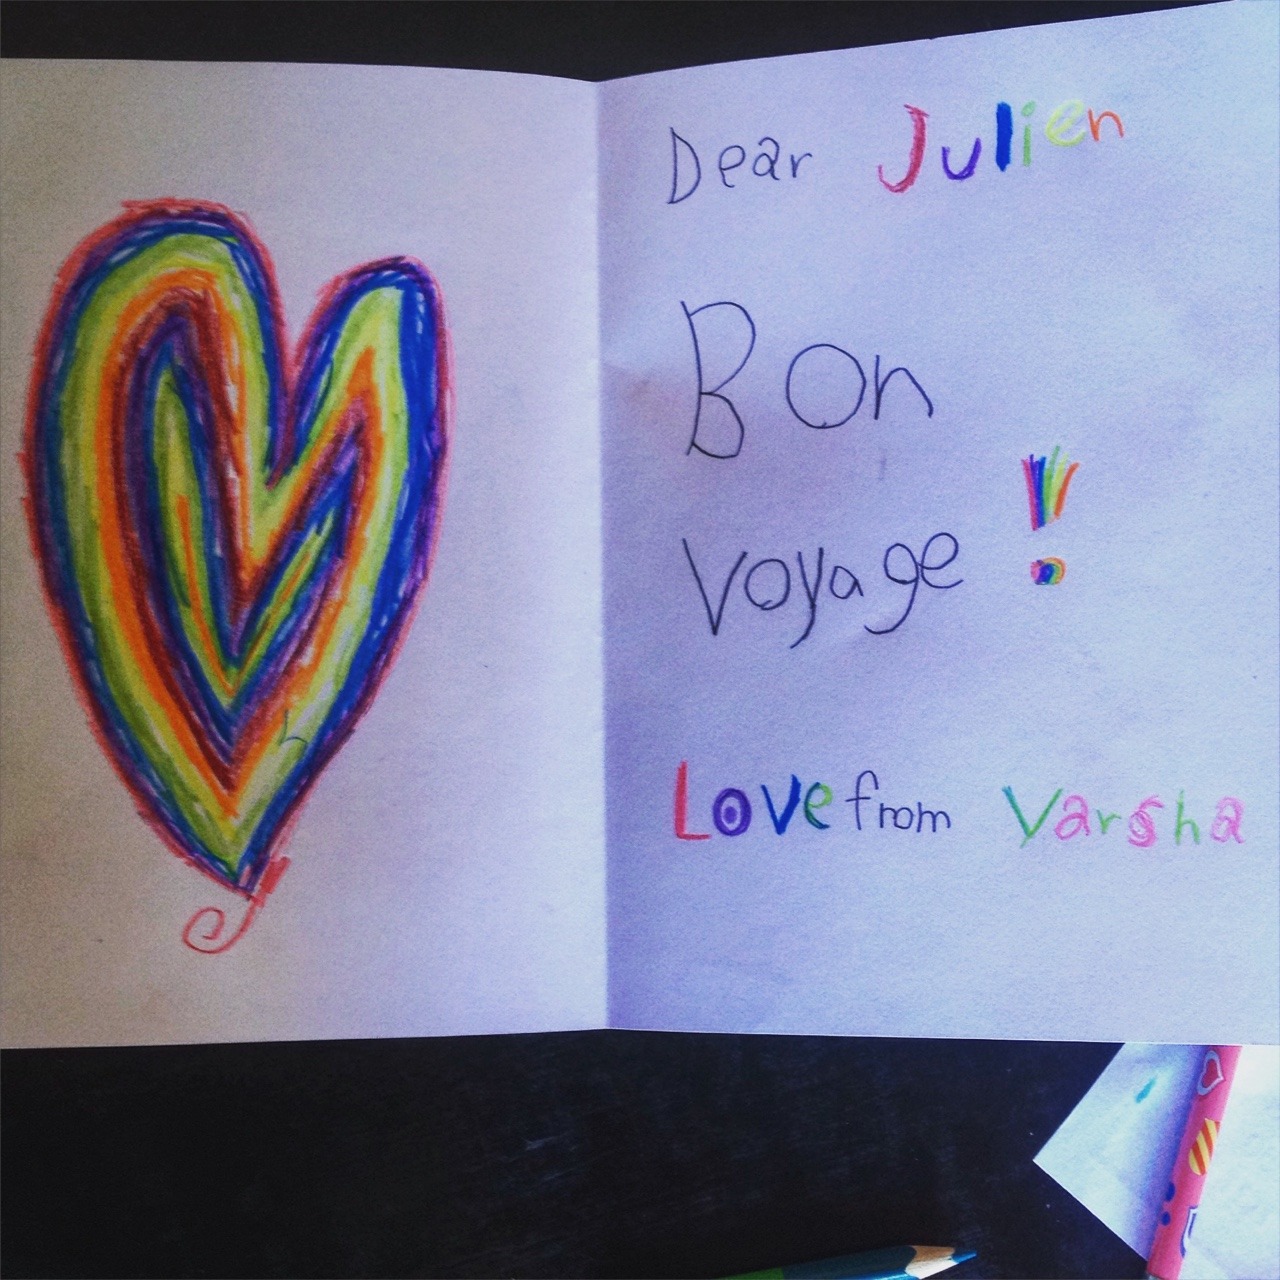 Dear Julien
Bon
Voyage !
Love from Varsha